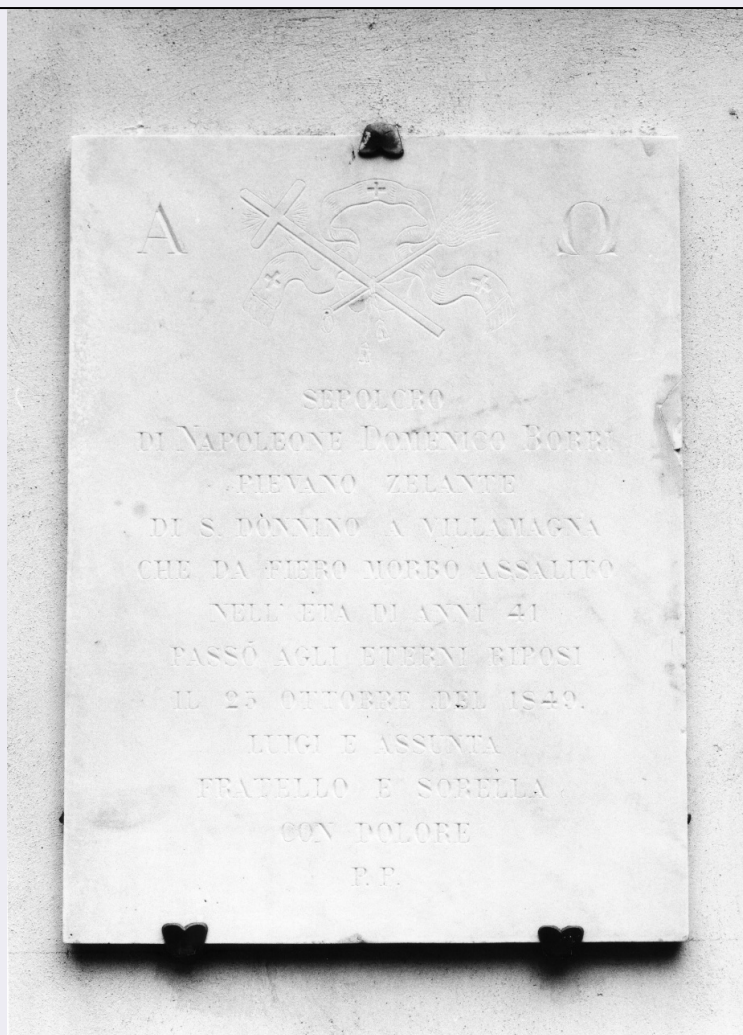 Α Ω
SEPOLCRO
DI NAPOLEONE DOMENICO BORRI
PIEVANO ZELANTE
DI S. DONNINO A VILLAMAGNA
CHE DA FIERO MORBO ASSALITO
NELL' ETÀ DI ANNI 41
PASSÒ AGLI ETERNI RIPOSI
IL 25 OTTOBRE DEL 1849.
LUIGI E ASSUNTA
FRATELLO E SORELLA
CON DOLORE
P. P.